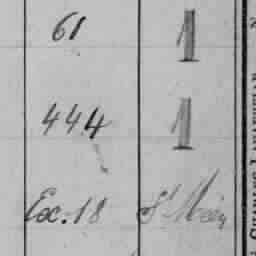 61 1
444 1
Ex. 18 St Méen